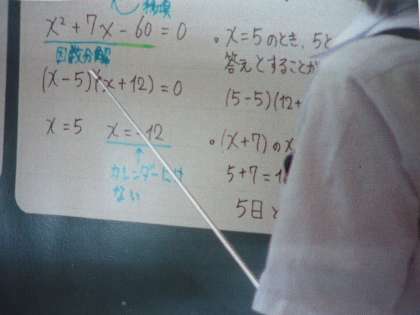 移項
x² + 7x - 60 = 0
因数分解
(x - 5)(x + 12) = 0
x = 5 x = -12
カレンダーには
ない
。x = 5 のとき、5と
答えとすることが
(5-5)(12+
。(x+7) の x
5+7=1
5日と